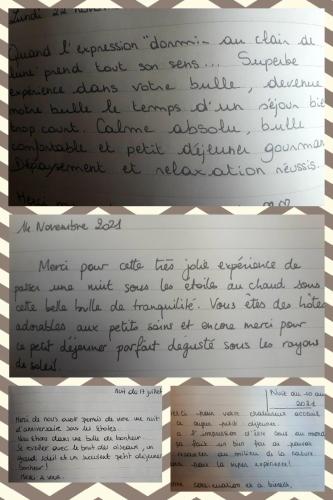 Lundi 22 nove
Quand l'expression "dormir au clair de
lune" prend tout son sens... Superbe
expérience dans votre bulle, devenue
notre bulle le temps d'un séjour bien
trop court. Calme absolu, bulle
comfortable et petit déjeuner gourman
Dépaysement et relaxation réussis.
Merci
14 Novembre 2021
Merci pour cette très jolie expérience de
passer une nuit sous les étoiles au chaud sous
cette belle bulle de tranquilité. Vous êtes des hôtes
adorables aux petits soins et encore merci pour
ce petit déjeuner parfait degusté sous les rayons
de soleil.
Nuit du 17 juillet
Merci de nous avoir permis de vivre une nuit
d'anniversaire sous les étoiles.
Nous étions dans une bulle de bonheur.
Se réveiller avec le bruit des oiseaux, un
soleil et un excellent petit déjeuner
bonheur!
Merci à vous.
Nuit au 10 au
2021
pour votre chaleureux accueil
ce super petit déjeuner.
a l'impression d'être seus au monde
ça fait un bien fou de pouvoir
ressourcer au milieu de la nature.
pour la super expérience!
continuation et à bientôt,